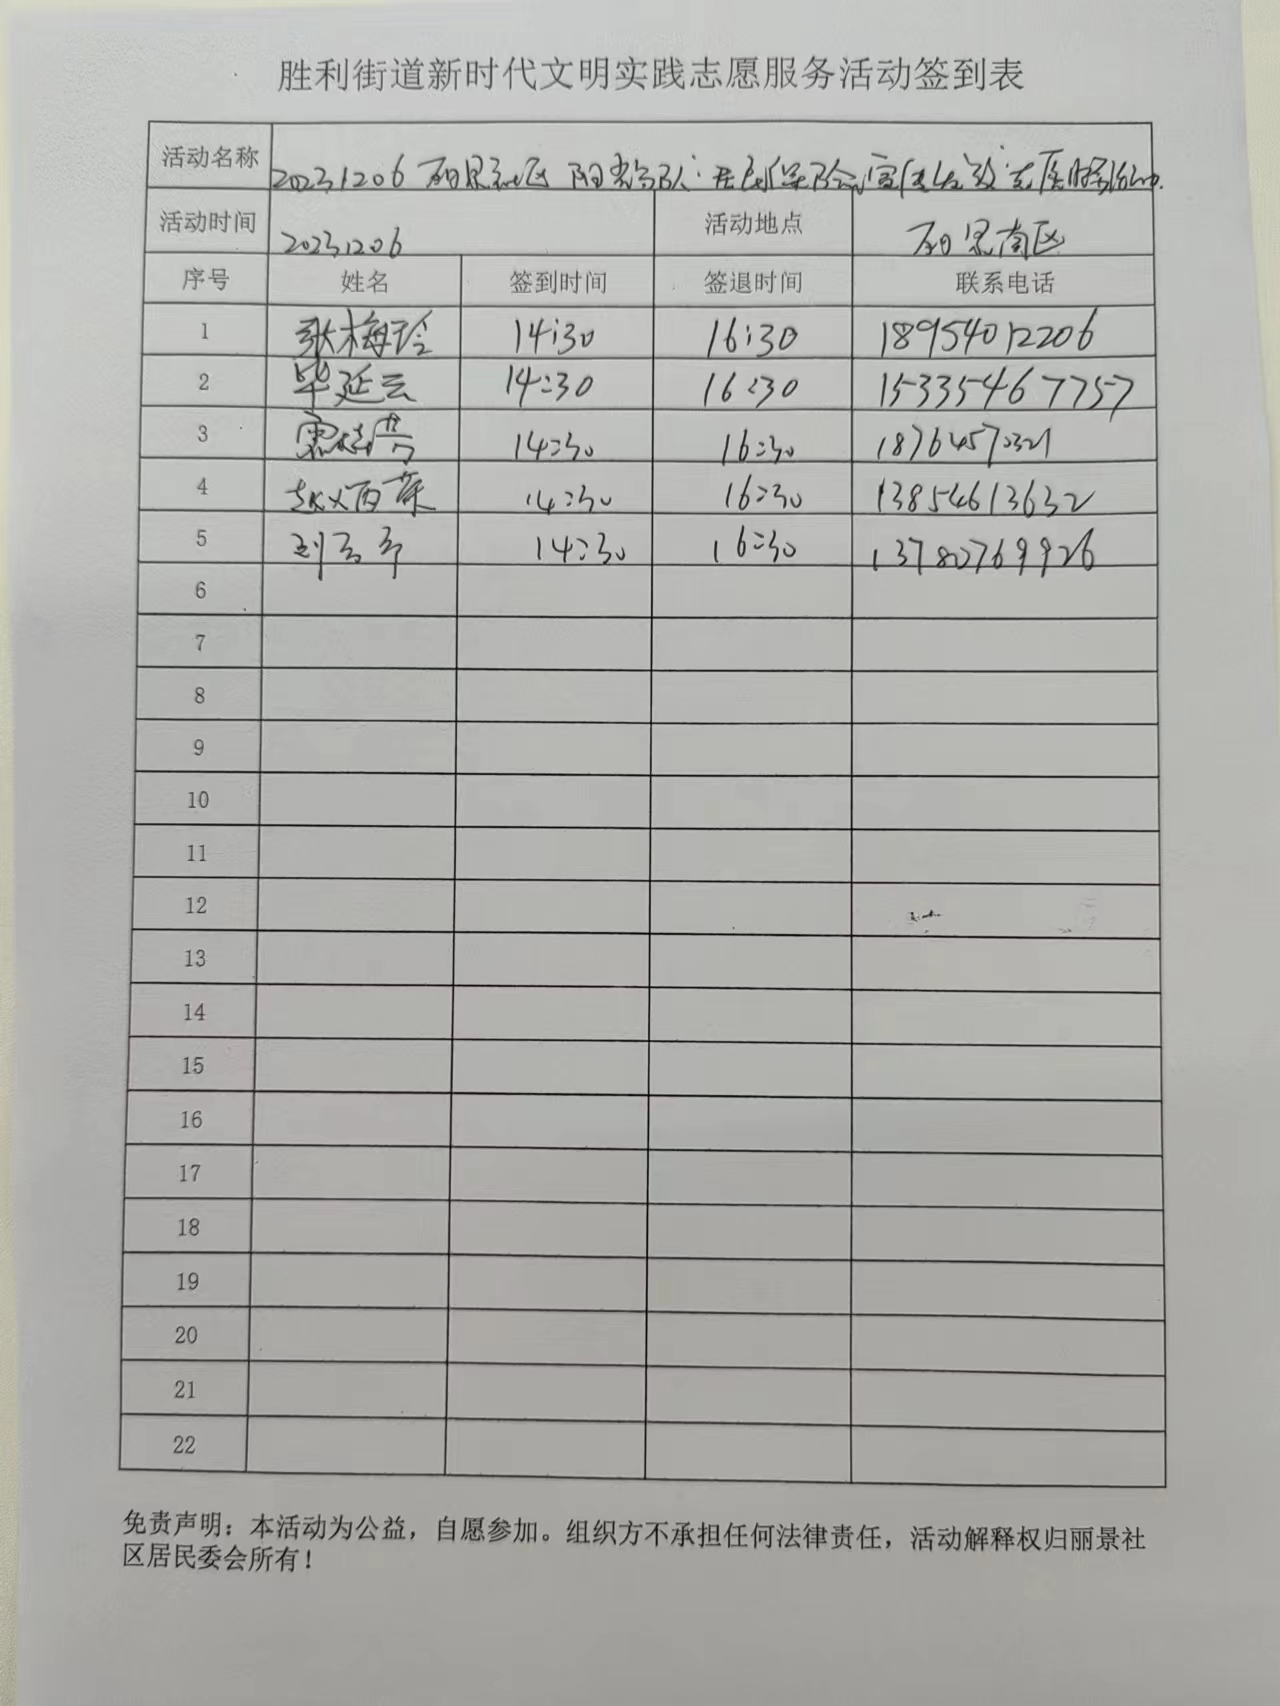 胜利街道新时代文明实践志愿服务活动签到表
活动名称 20231206 社区
活动时间 20231206 活动地点 南区
序号 姓名 签到时间 签退时间 联系电话
1 张梅玲 14:30 16:30 18954012206
2 毕延云 14:30 16:30 15335467757
3 14:30 16:30 18764570321
4 14:30 16:30 13854613632
5 14:30 16:30 13780769926
6
7
8
9
10
11
12
13
14
15
16
17
18
19
20
21
22
免责声明：本活动为公益，自愿参加。组织方不承担任何法律责任，活动解释权归丽景社
区居民委会所有！